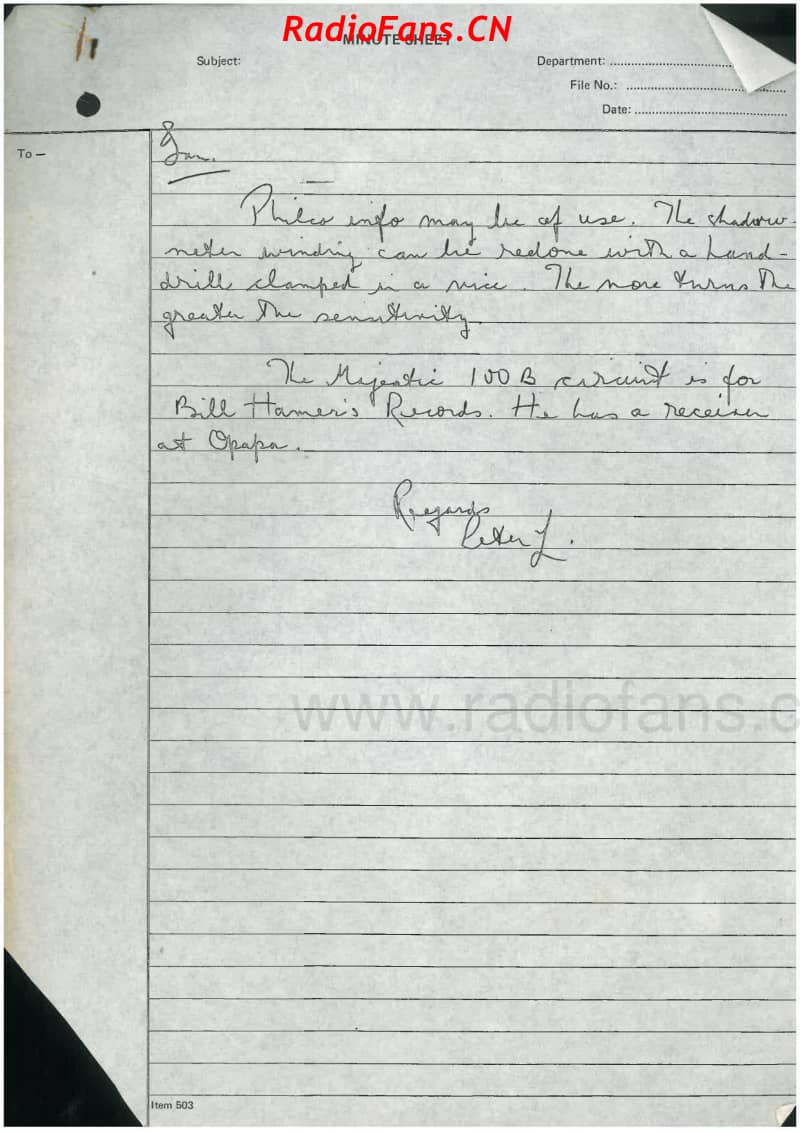 RadioFans.CN
MINUTE SHEET
Subject:
Department:
File No.:
Date:
To —
Ian.
Philco info may be of use. The shadow-
meter winding can be redone with a hand-
drill clamped in a vice. The more turns the
greater the sensitivity
The Majestic 100B circuit is for
Bill Hamer's Records. He has a receiver
at Opapa.
Regards
Peter L.
www.radiofans.c
Item 503